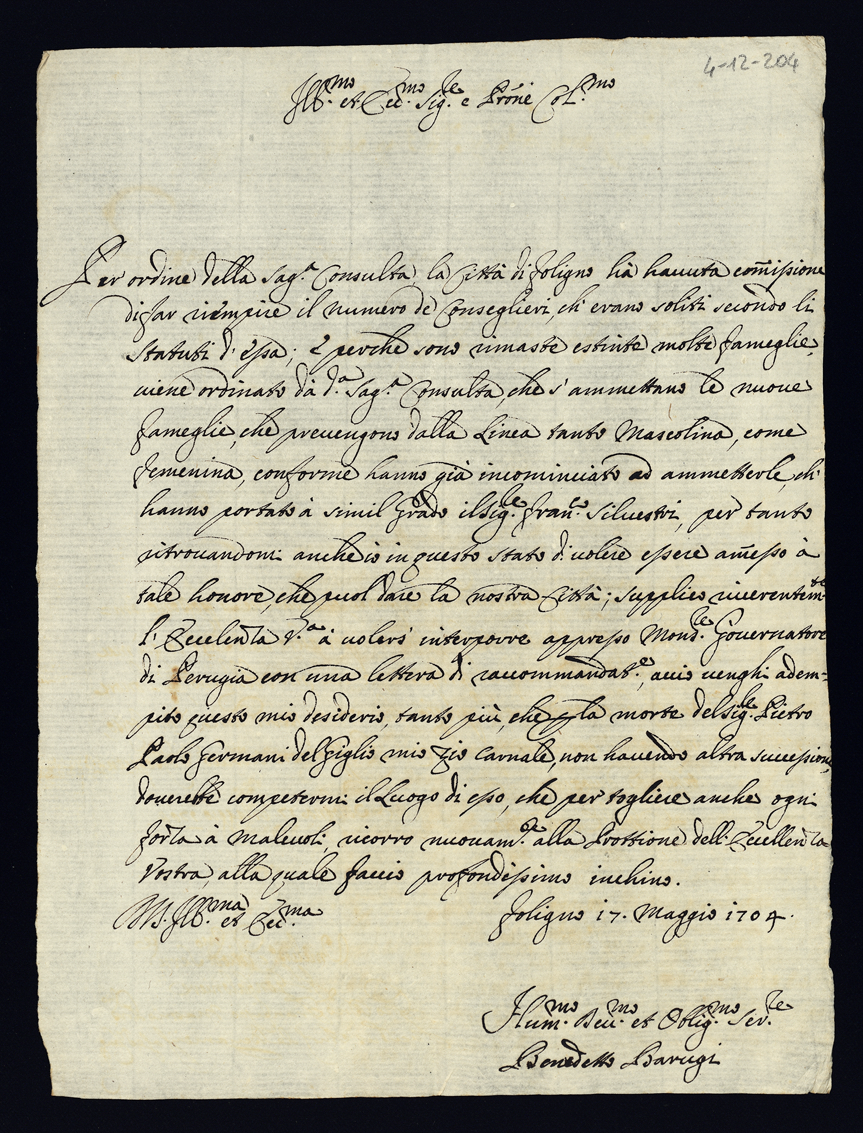 4-12-204
Ill.mo et Ecc.mo Sig.re e Prōne Col.mo
Per ordine della Sag.a Consulta la Città di foligno hà havuta com̃issione
di far riempire il numero de Conseglieri, ch'erano soliti secondo li
statuti d'essa; e perche sono rimaste estinte molte fameglie,
viene ordinato dà d.a Sag.a Consulta, che s'ammettano le nuove
fameglie, che provengono dalla Linea tanto Mascolina, come
femenina, conforme hanno già incominciato ad ammetterle, ch'
hanno portato à simil Grado il Sig.re Fran.co Silvestri, per tanto
ritrovandomi anche io in questo stato di volere essere am̃esso à
tale honore, che puol dare la nostra Città; supplico riverentem.te
l'Eccelenza V.a à volersi interporre appresso Mons.re Governatore
di Perugia con una lettera di raccommandat.e, acciò venghi adem-
pito questo mio desiderio, tanto più, che p la morte del Sig.re Pietro
Paolo Germani del Giglio mio Zio Carnale, non havendo altra successione,
doverebbe competermi il Luogo di esso, che per togliere anche ogni
forza à malevoli, ricorro nuovam.te alla Prottione dell'Eccellenza
Vostra, alla quale faccio profondissimo inchino.
V. S. Ill.ma et Ecc.ma
foligno 17. Maggio 1704.
Hum.mo Dev.mo et Oblig.mo Ser.re
Benedetto Barugi